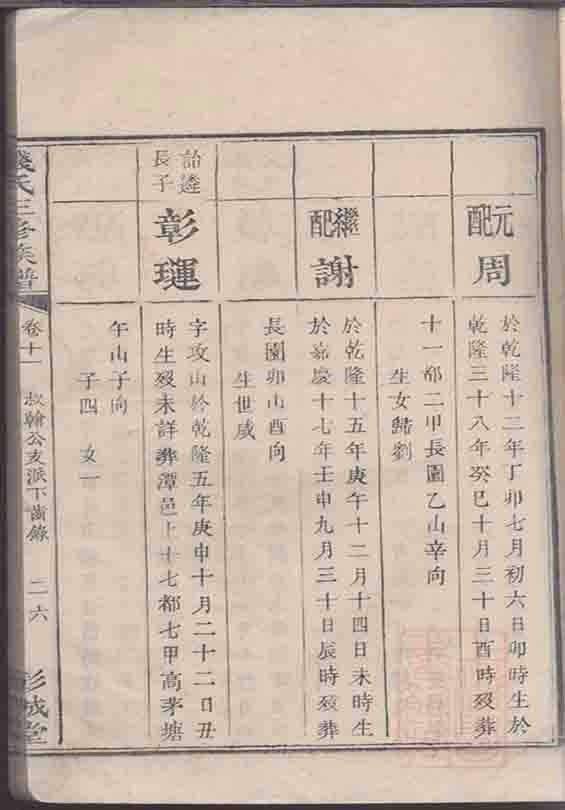 元配
周
於乾隆十二年丁卯七月初六日卯時生於
乾隆三十八年癸巳十月三十日酉時殁葬
十一都二甲長圖乙山辛向
生女歸劉
繼配
謝
於乾隆十五年庚午十二月十四日未時生
於嘉慶十七年壬申九月三十日辰時殁葬
長園卯山酉向
生世咸
詒遴
長子
彰璭
字攻山於乾隆五年庚申十月二十二日丑
時生殁未詳葬潭邑上十七都七甲高茅塘
午山子向
子四 女一
錢氏三修族譜
卷十一
叔翰公支派下齒錄
二六
彭城堂